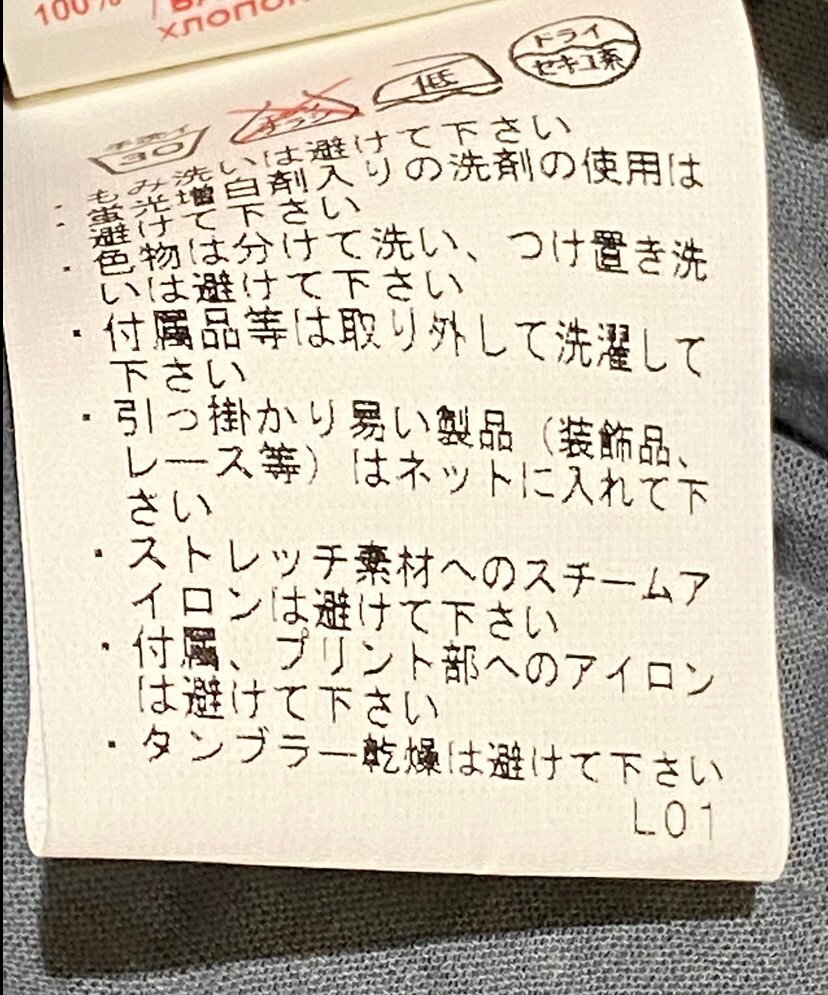 100%
ХЛОПОК
手洗イ
30
低
ドライ
セキユ系
・もみ洗いは避けて下さい
・蛍光増白剤入りの洗剤の使用は
避けて下さい
・色物は分けて洗い、つけ置き洗
いは避けて下さい
・付属品等は取り外して洗濯して
下さい
・引っ掛かり易い製品（装飾品、
レース等）はネットに入れて下
さい
・ストレッチ素材へのスチームア
イロンは避けて下さい
・付属、プリント部へのアイロン
は避けて下さい
・タンブラー乾燥は避けて下さい
L01